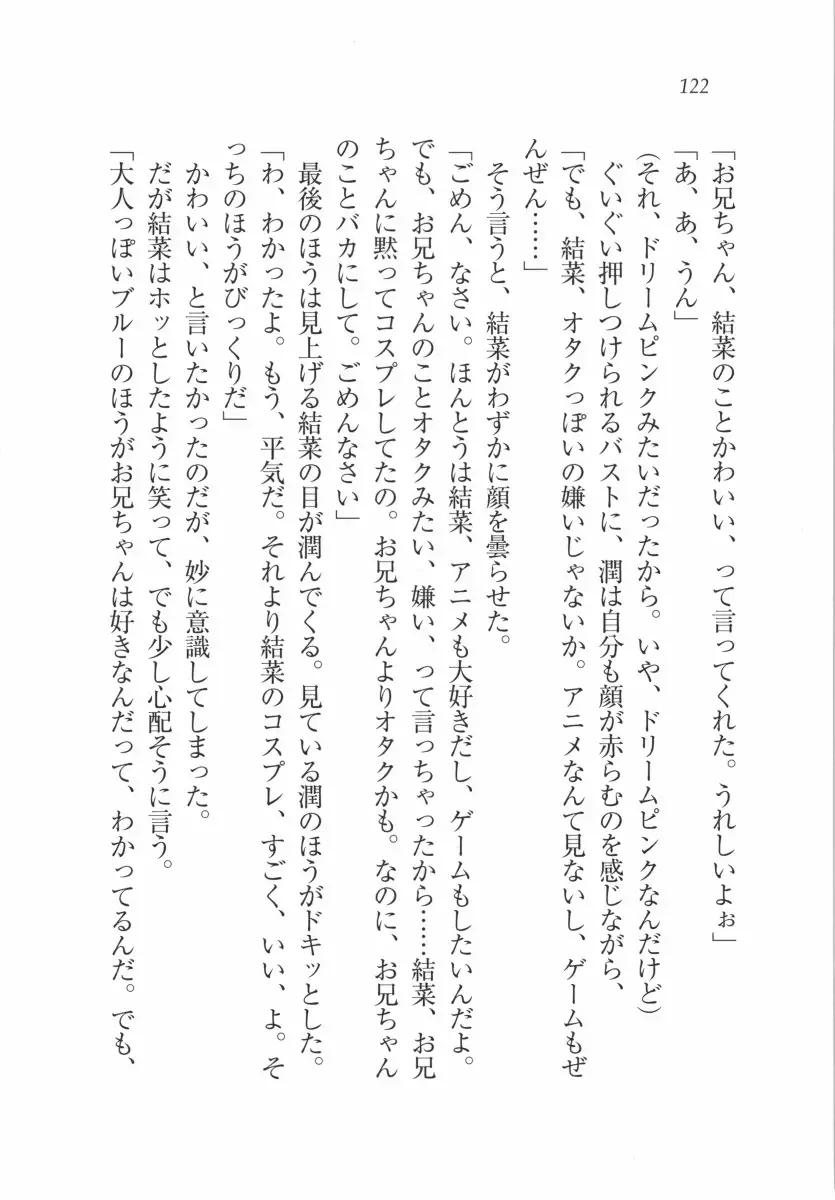 122
「お兄ちゃん、結菜のことかわいい、って言ってくれた。うれしいよぉ」
「あ、あ、うん」
(それ、ドリームピンクみたいだったから。いや、ドリームピンクなんだけど)
ぐいぐい押しつけられるバストに、潤は自分も顔が赤らむのを感じながら、
「でも、結菜、オタクっぽいの嫌いじゃないか。アニメなんて見ないし、ゲームもぜ
んぜん……」
そう言うと、結菜がわずかに顔を曇らせた。
「ごめん、なさい。ほんとうは結菜、アニメも大好きだし、ゲームもしたいんだよ。
でも、お兄ちゃんのことオタクみたい、嫌い、って言っちゃったから……結菜、お兄
ちゃんに黙ってコスプレしてたの。お兄ちゃんよりオタクかも。なのに、お兄ちゃん
のことバカにして。ごめんなさい」
最後のほうは見上げる結菜の目が潤んでくる。見ている潤のほうがドキッとした。
「わ、わかったよ。もう、平気だ。それより結菜のコスプレ、すごく、いい、よ。そ
っちのほうがびっくりだ」
かわいい、と言いたかったのだが、妙に意識してしまった。
だが結菜はホッとしたように笑って、でも少し心配そうに言う。
「大人っぽいブルーのほうがお兄ちゃんは好きなんだって、わかってるんだ。でも、